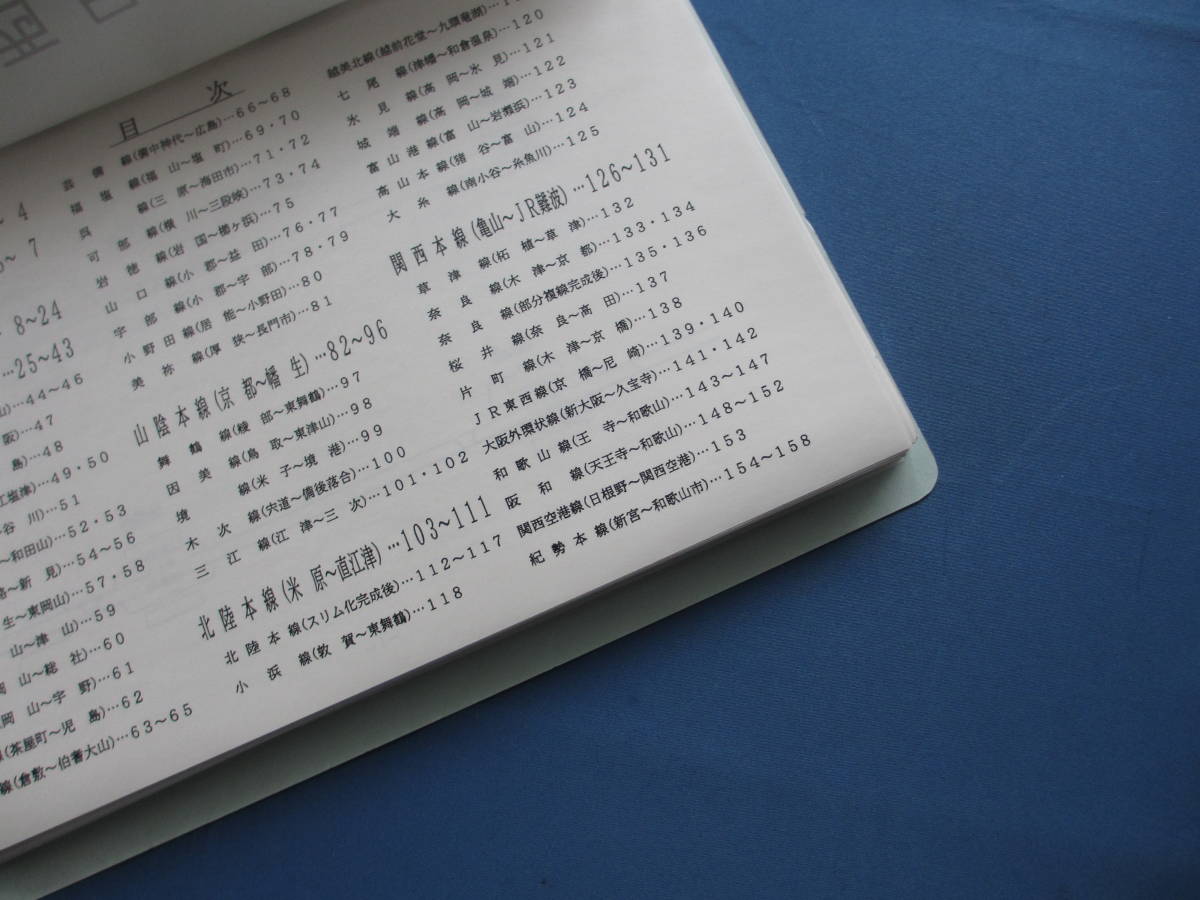 目次
～ 4
～ 7
8～24
…25～43
山)…44～46
阪)…47
島)…48
江塩津)…49・50
谷 川)…51
～和田山)…52・53
路～新 見)…54～56
生～東岡山)…57・58
山～津 山)…59
岡 山～総 社)…60
岡 山～宇 野)…61
線(茶屋町～児 島)…62
線(倉敷～伯耆大山)…63～65
芸 備 線(備中神代～広島)…66～68
福 塩 線(福 山～塩 町)…69・70
呉 線(三 原～海田市)…71・72
可 部 線(横 川～三段峡)…73・74
岩 徳 線(岩 国～櫛ヶ浜)…75
山 口 線(小 郡～益 田)…76・77
宇 部 線(小 郡～宇 部)…78・79
小 野 田 線(居 能～小野田)…80
美 祢 線(厚 狭～長門市)…81
山 陰 本 線(京 都～幡 生)…82～96
舞 鶴 線(綾 部～東舞鶴)…97
因 美 線(鳥 取～東津山)…98
境 線(米 子～境 港)…99
木 次 線(宍道～備後落合)…100
三 江 線(江 津～三 次)…101・102
北 陸 本 線(米 原～直江津)…103～111
北 陸 本 線(スリム化完成後)…112～117
小 浜 線(敦 賀～東舞鶴)…118
越美北線(越前花堂～九頭竜湖)…
七 尾 線(津幡～和倉温泉)…120
氷 見 線(高 岡～氷 見)…121
城 端 線(高 岡～城 端)…122
富 山 港 線(富 山～岩瀬浜)…123
高 山 本 線(猪 谷～富 山)…124
大 糸 線(南小谷～糸魚川)…125
関 西 本 線(亀山～JR難波)…126～131
草 津 線(柘 植～草 津)…132
奈 良 線(木 津～京 都)…133・134
奈 良 線(部分複線完成後)…135・136
桜 井 線(奈 良～高 田)…137
片 町 線(木 津～京 橋)…138
JR東西線(京 橋～尼 崎)…139・140
大阪外環状線(新大阪～久宝寺)…141・142
和 歌 山 線(王 寺～和歌山)…143～147
阪 和 線(天王寺～和歌山)…148～152
関西空港線(日根野～関西空港)…153
紀 勢 本 線(新宮～和歌山市)…154～158